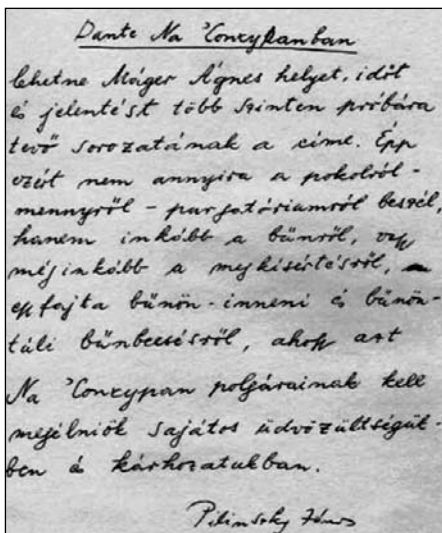 Dante Na 'Conxypanban
lehetne Máger Ágnes helyet, időt
és jelentést több szinten próbára
tevő sorozatának a címe. Épp
ezért nem annyira a pokolról-
mennyről - purgatóriumról beszél,
hanem inkább a bűnről, vagy
méginkább a megkísértésről,
egyfajta bűnön-inneni és bűnön-
túli bűnbeesésről, ahogy azt
Na 'Conxypan polgárainak kell
megélniök sajátos üdvözültségük-
ben és kárhozatukban.
Pilinszky János